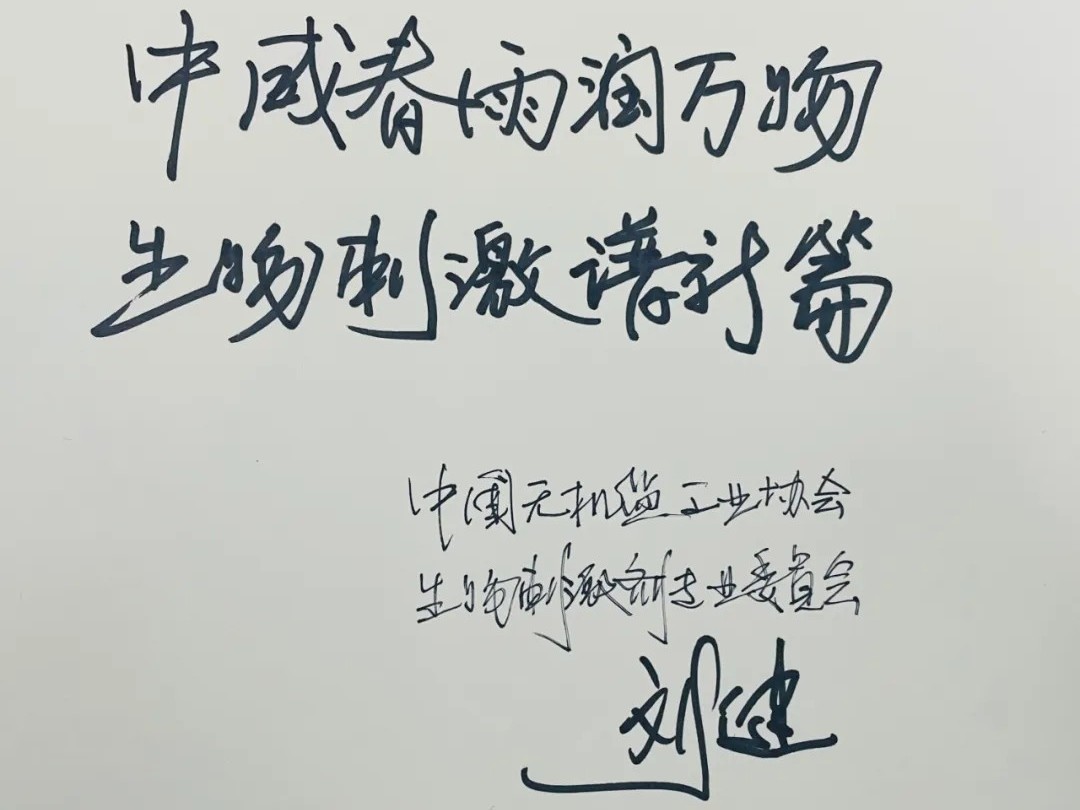 中威春雨润万物
生物刺激谱新篇
中国无机盐工业协会
生物刺激剂专业委员会
刘健